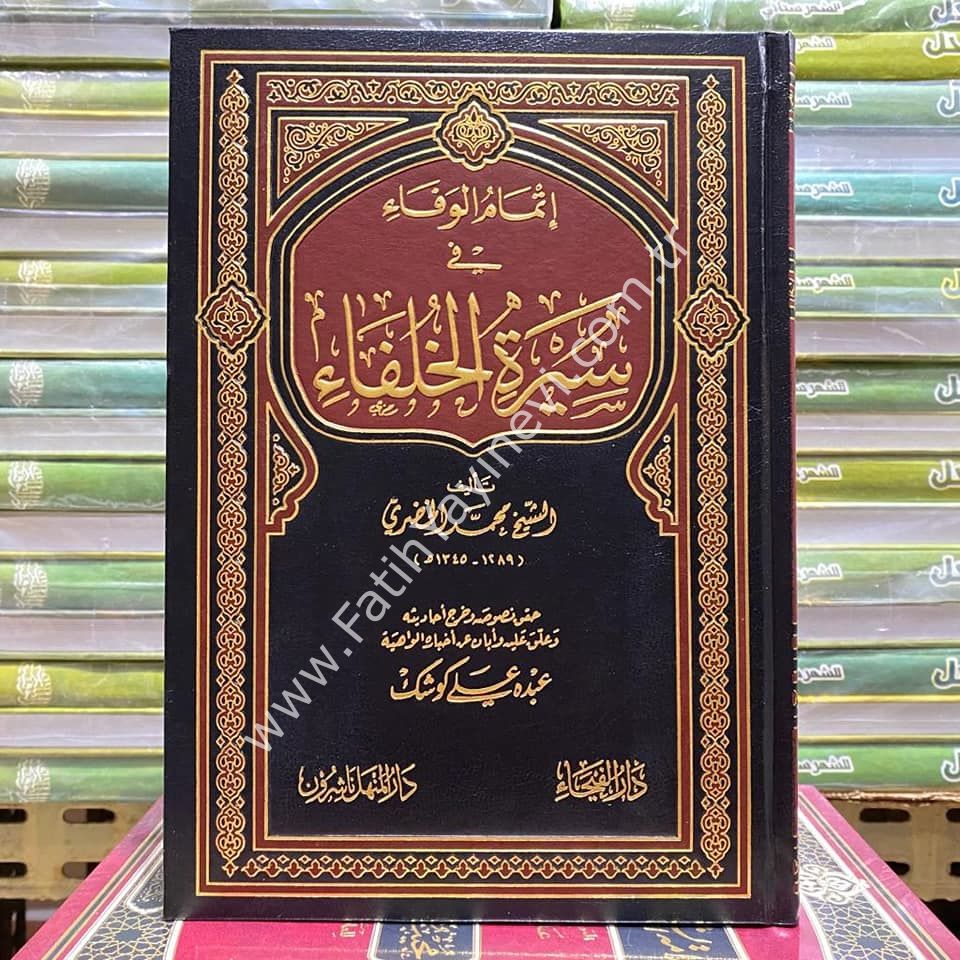 إتمام الوفاء
في
سيرة الخلفاء
تأليف
الشيخ محمد الخضري
(١٢٨٩ - ١٣٤٥ هـ)
حقق نصوصه وخرج أحاديثه
وعلق عليه وأبان عن أخباره الواهية
عبده علي كوشك
دار الفيحاء
دار المنهل ناشرون
www.Fatihyayinevi.com.tr